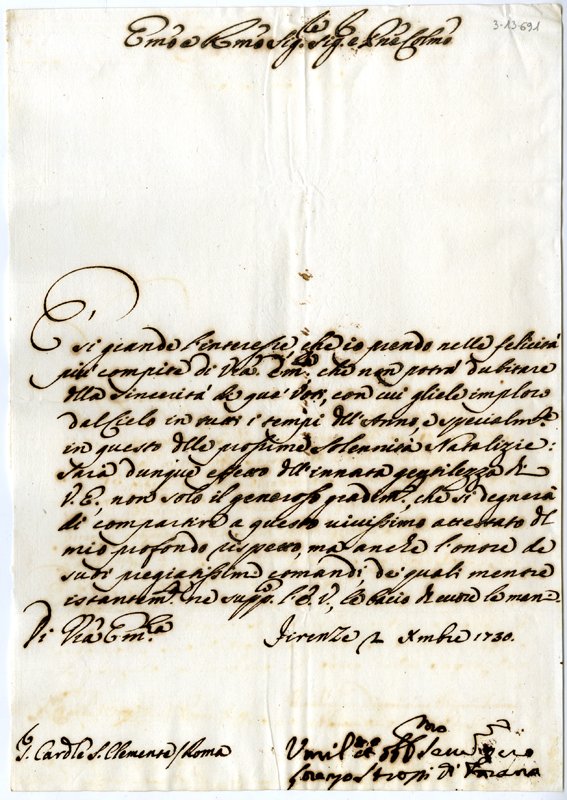 3-13-691
Emo e Rmo Sig.re Sig.e Pne Colmo
È si grande l'interesse, che io prendo nelle felicità
più compite di Vra Em.za che non potrà dubitare
della sincerità de qua' Voti, con cui gliele imploro
dal Cielo in tutti i tempi dell'Anno, e specialmte
in questo delle prossime Solennità Natalizie:
Sarà dunque effetto dell'innata gentilezza di
V. E., non solo il generoso gradimto, che si degnerà
di compartire a questo vivissimo attestato del
mio profondo rispetto, ma anche l'onore de
suoi pregiatissimi comandi, de quali mentre
istantemte ne supp.co l'E. V., le bacio di cuore le mani.
Di Vra Em.za Firenze 2 Xmbre 1730.
S. Card.le S. Clemente / Roma
Umil.mo et Obb.mo Serv.
Lorenzo Strozzi di